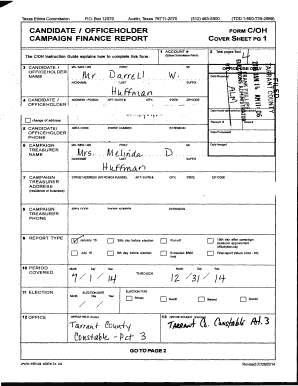 Texas Ethics Commission P.O. Box 12070 Austin, Texas 78711-2070 (512) 463-5800 (TDD 1-800-735-2989)
CANDIDATE / OFFICEHOLDER FORM C/OH
CAMPAIGN FINANCE REPORT COVER SHEET PG 1
The C/OH Instruction Guide explains how to complete this form.
1 ACCOUNT #
2 Total pages filed:
3 CANDIDATE / OFFICEHOLDER NAME
MS / MRS / MR FIRST MI
Mr. Darrell W.
NICKNAME LAST SUFFIX
Huffman
4 CANDIDATE / OFFICEHOLDER
ADDRESS / PO BOX; APT / SUITE #; CITY; STATE; ZIP CODE
change of address
5 CANDIDATE / OFFICEHOLDER PHONE
AREA CODE PHONE NUMBER EXTENSION
6 CAMPAIGN TREASURER NAME
MS / MRS / MR FIRST MI
Mrs. Melinda D.
NICKNAME LAST SUFFIX
Huffman
7 CAMPAIGN TREASURER ADDRESS
(residence or business)
STREET ADDRESS (NO PO BOX PLEASE); APT / SUITE #; CITY; STATE; ZIP CODE
8 CAMPAIGN TREASURER PHONE
AREA CODE PHONE NUMBER EXTENSION
9 REPORT TYPE
January 15 30th day before election Runoff 15th day after campaign treasurer appointment
July 15 8th day before election Exceeded $500 limit Final report
10 PERIOD COVERED
Month Day Year THROUGH Month Day Year
7 / 1 / 14 12 / 31 / 14
11 ELECTION
ELECTION DATE ELECTION TYPE
Month Day Year Primary Runoff General Special
12 OFFICE
OFFICE HELD
Tarrant County
Constable - Pct 3
13 OFFICE SOUGHT
Tarrant Co. Constable Pct. 3
GO TO PAGE 2
www.ethics.state.tx.us